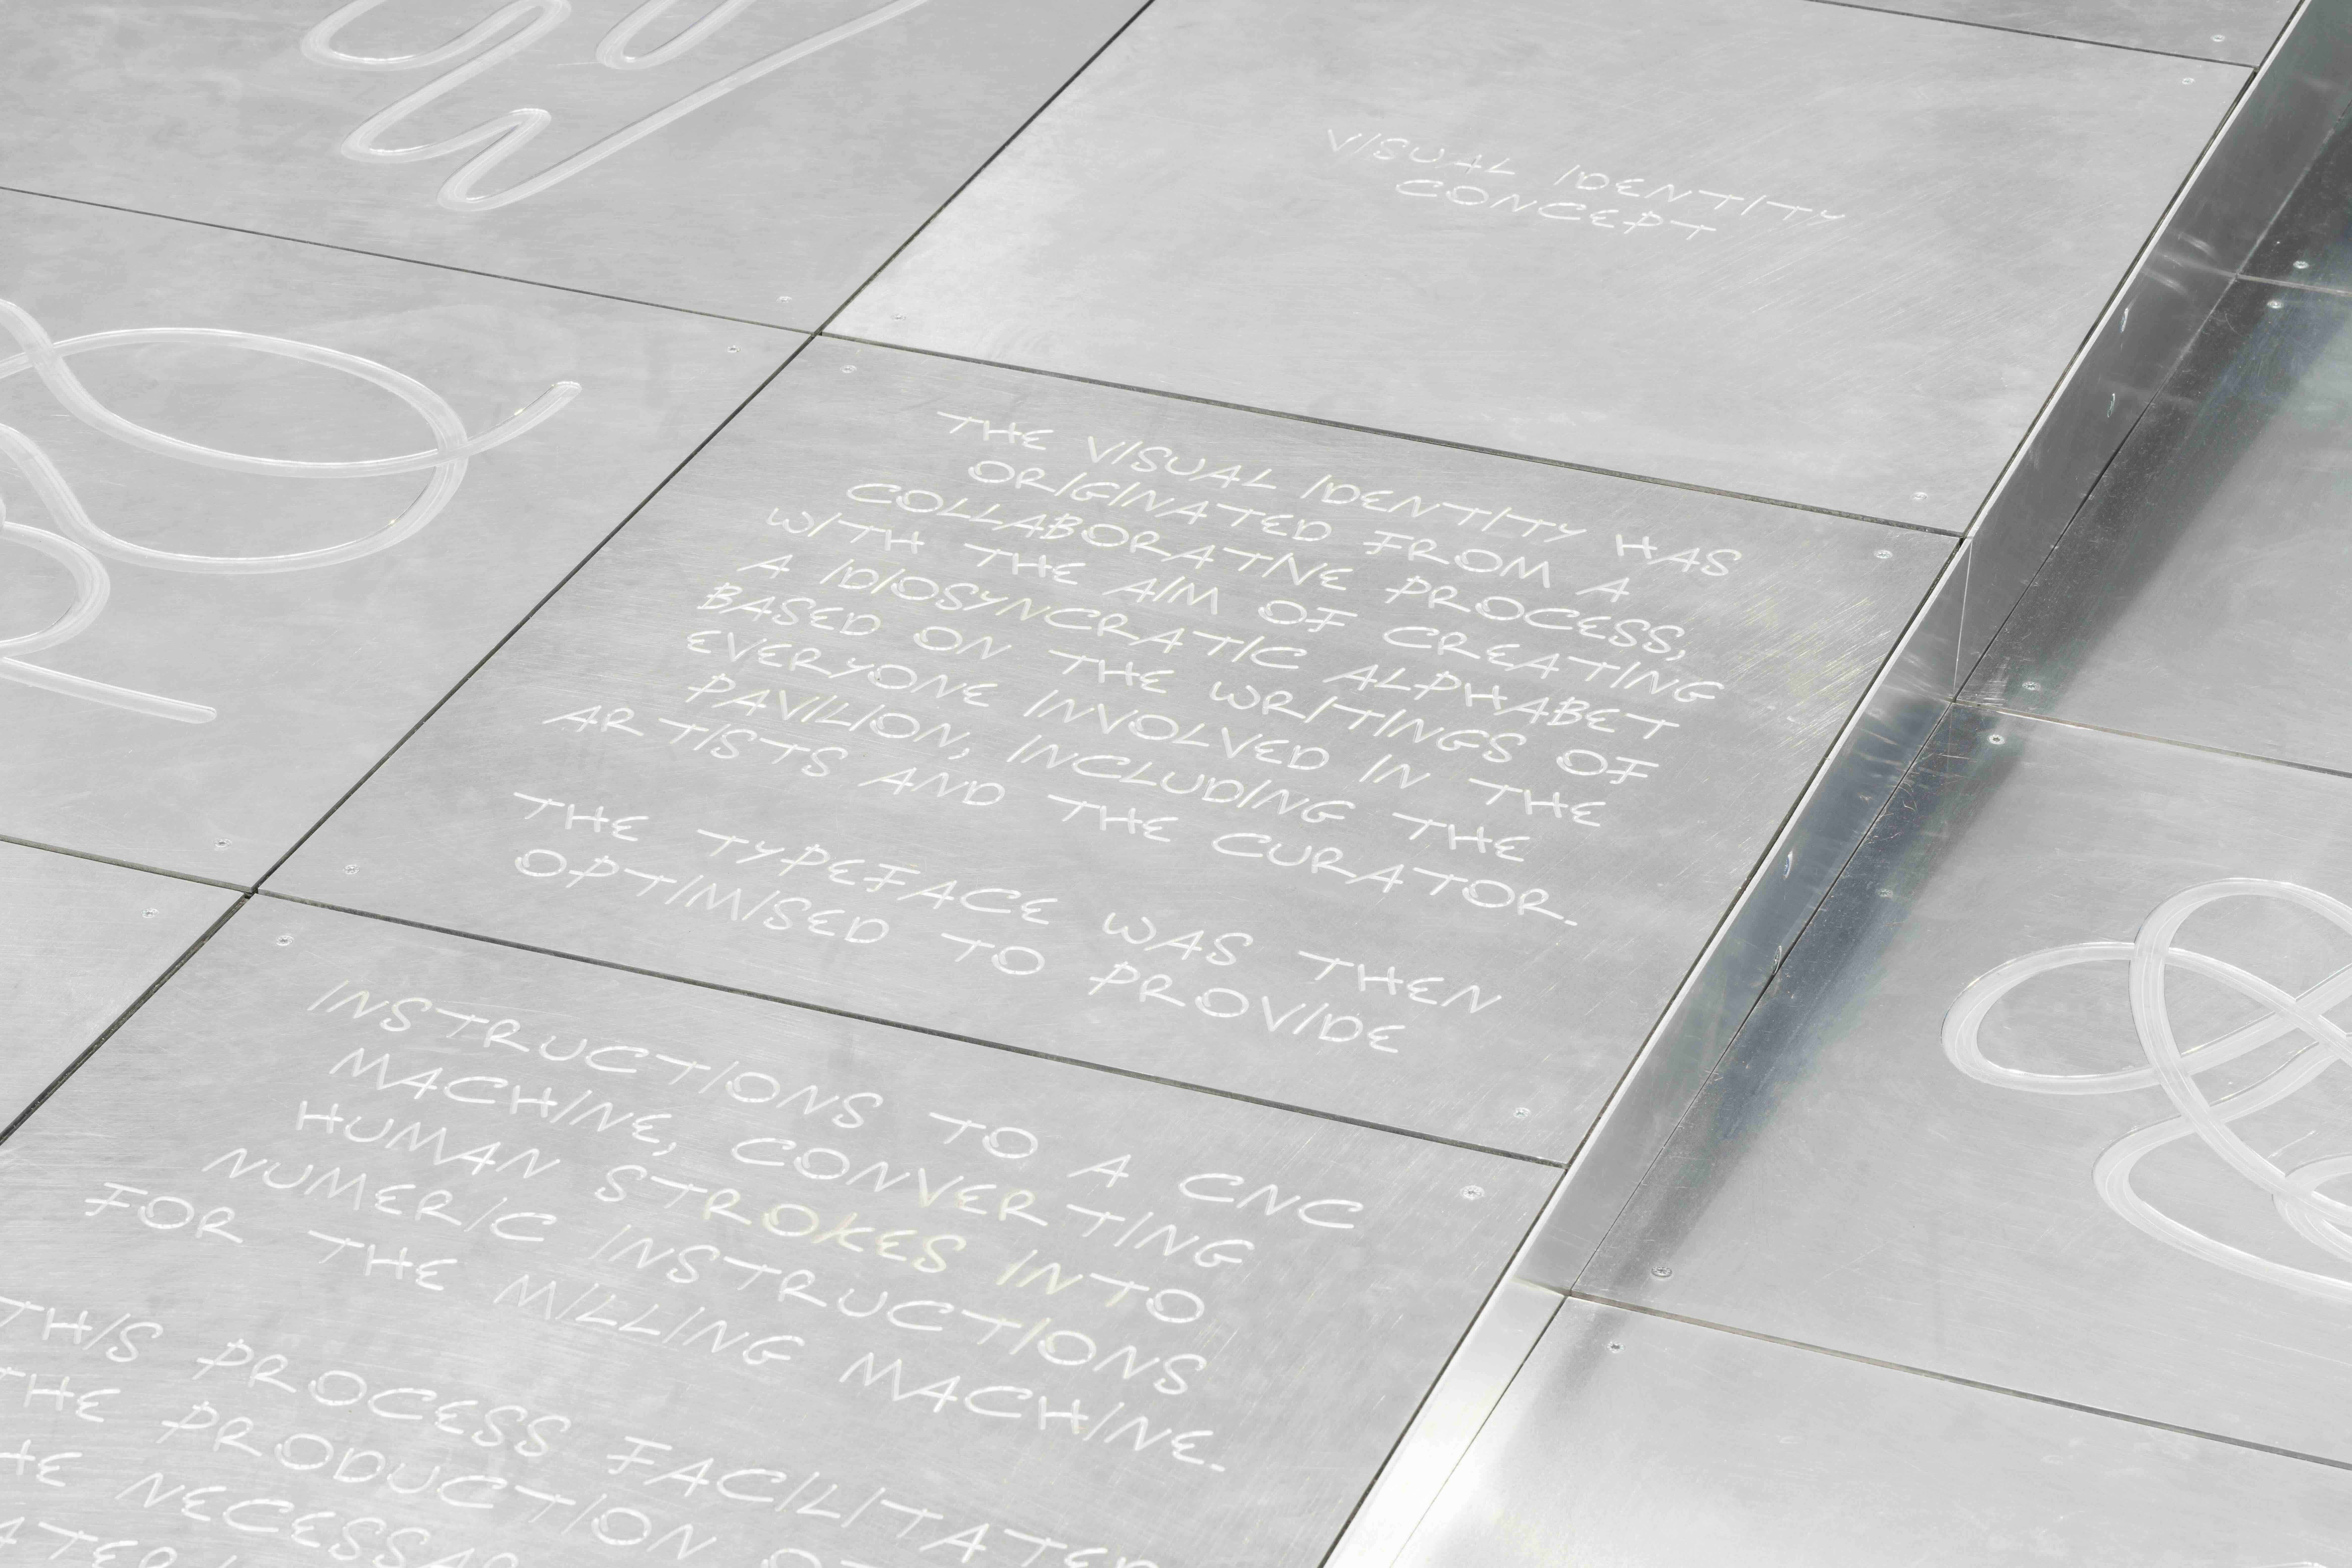 VISUAL IDENTITY
CONCEPT
THE VISUAL IDENTITY HAS
ORIGINATED FROM A
COLLABORATIVE PROCESS,
WITH THE AIM OF CREATING
A IDIOSYNCRATIC ALPHABET
BASED ON THE WRITINGS OF
EVERYONE INVOLVED IN THE
PAVILION, INCLUDING THE
ARTISTS AND THE CURATOR.
THE TYPEFACE WAS THEN
OPTIMISED TO PROVIDE
INSTRUCTIONS TO A CNC
MACHINE, CONVERTING
HUMAN STROKES INTO
NUMERIC INSTRUCTIONS
FOR THE MILLING MACHINE.
THIS PROCESS FACILITATED
THE PRODUCTION
NECESSAR